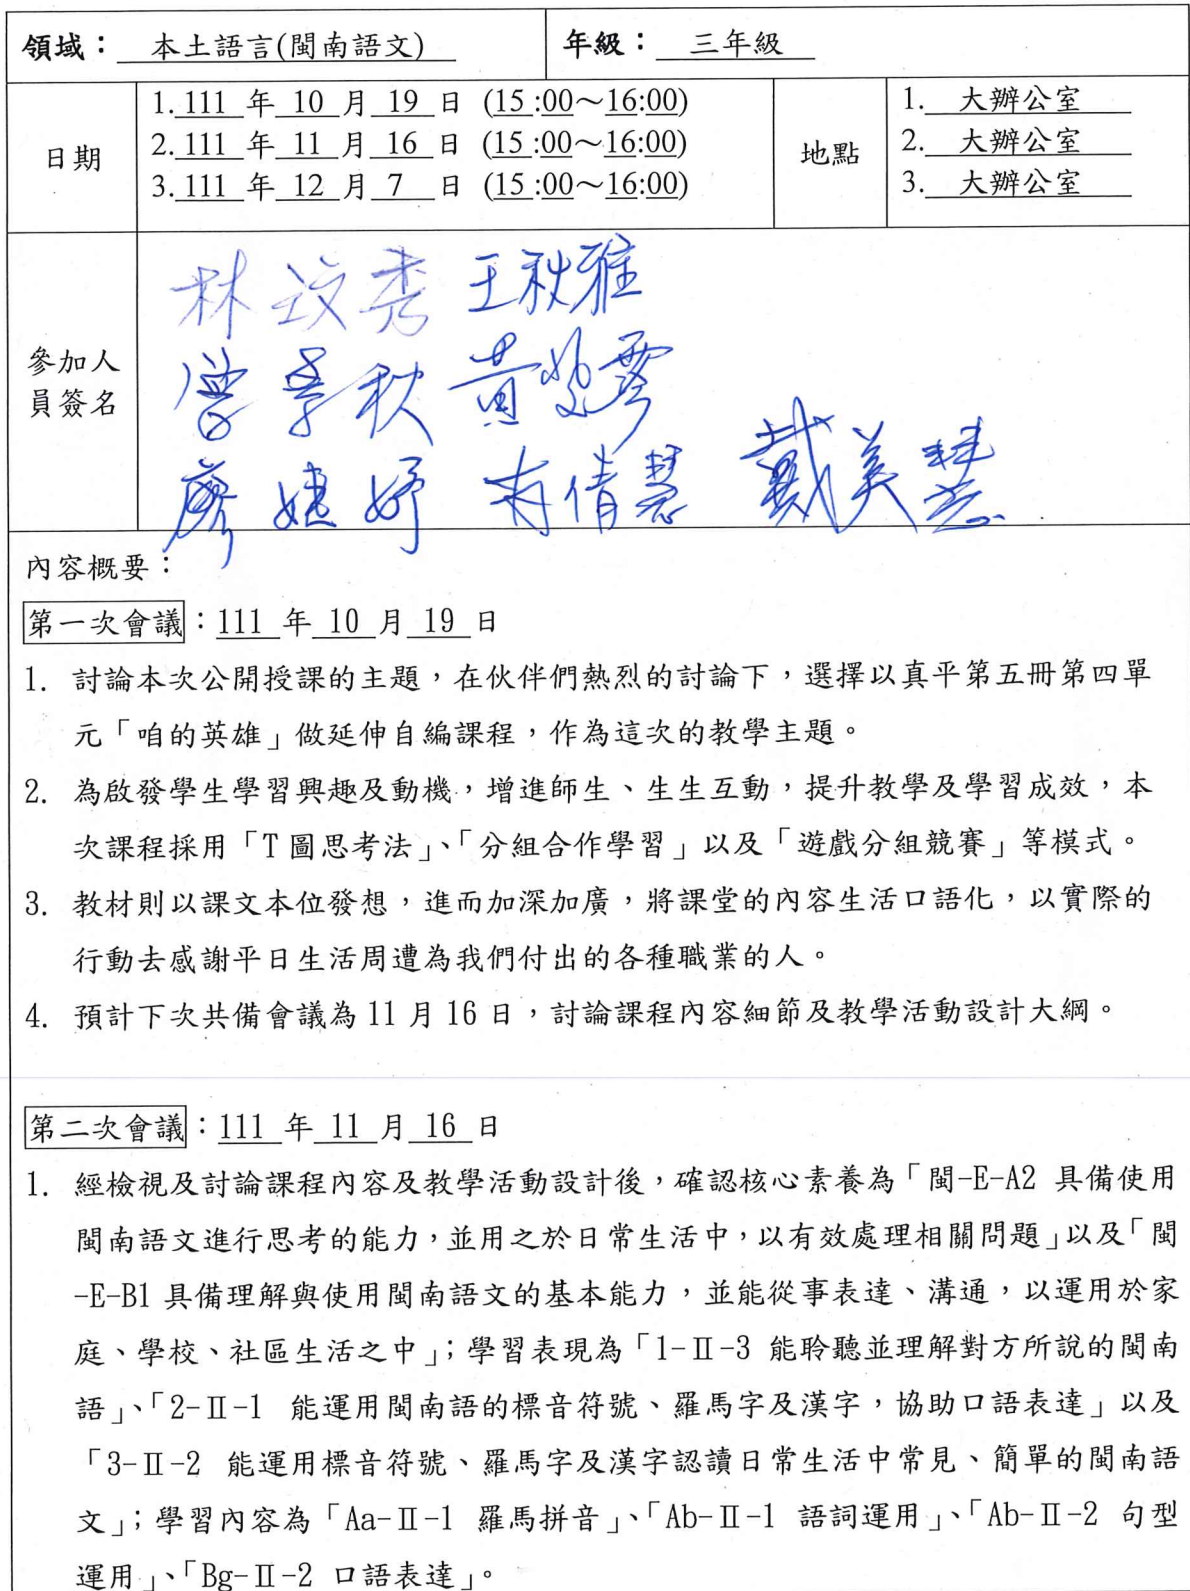 領域： 本土語言(閩南語文) 年級： 三年級
日期
1. 111 年 10 月 19 日 (15:00～16:00)
2. 111 年 11 月 16 日 (15:00～16:00)
3. 111 年 12 月 7 日 (15:00～16:00)
地點
1. 大辦公室
2. 大辦公室
3. 大辦公室
參加人
員簽名
林 秀 王秋雅
曾 秋 黃
廖婕妤 倩慧 戴美慧
內容概要：
第一次會議：111 年 10 月 19 日
1. 討論本次公開授課的主題，在伙伴們熱烈的討論下，選擇以真平第五冊第四單
元「咱的英雄」做延伸自編課程，作為這次的教學主題。
2. 為啟發學生學習興趣及動機，增進師生、生生互動，提升教學及學習成效，本
次課程採用「T圖思考法」、「分組合作學習」以及「遊戲分組競賽」等模式。
3. 教材則以課文本位發想，進而加深加廣，將課堂的內容生活口語化，以實際的
行動去感謝平日生活周遭為我們付出的各種職業的人。
4. 預計下次共備會議為 11 月 16 日，討論課程內容細節及教學活動設計大綱。
第二次會議：111 年 11 月 16 日
1. 經檢視及討論課程內容及教學活動設計後，確認核心素養為「閩-E-A2 具備使用
閩南語文進行思考的能力，並用之於日常生活中，以有效處理相關問題」以及「閩
-E-B1 具備理解與使用閩南語文的基本能力，並能從事表達、溝通，以運用於家
庭、學校、社區生活之中」；學習表現為「1-Ⅱ-3 能聆聽並理解對方所說的閩南
語」、「2-Ⅱ-1 能運用閩南語的標音符號、羅馬字及漢字，協助口語表達」以及
「3-Ⅱ-2 能運用標音符號、羅馬字及漢字認讀日常生活中常見、簡單的閩南語
文」；學習內容為「Aa-Ⅱ-1 羅馬拼音」、「Ab-Ⅱ-1 語詞運用」、「Ab-Ⅱ-2 句型
運用」、「Bg-Ⅱ-2 口語表達」。